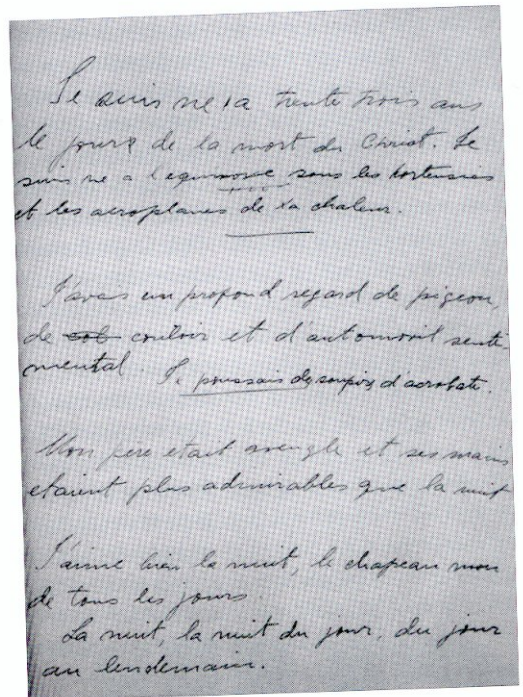 Je suis ne a trente trois ans
le jour de la mort du Christ. Je
suis ne a l'equinoxe sous les hortensias
et les aeroplanes de la chaleur.
J'avais un profond regard de pigeon,
de couloir et d'automovil senti-
mental. Je poussais des soupirs d'acrobate.
Mon pere etait avengle et ses mains
etaient plus admirables que la nuit
J'aime bien la nuit, le chapeau mon
de tous les jours.
La nuit, la nuit du jour, du jour
au lendemain.